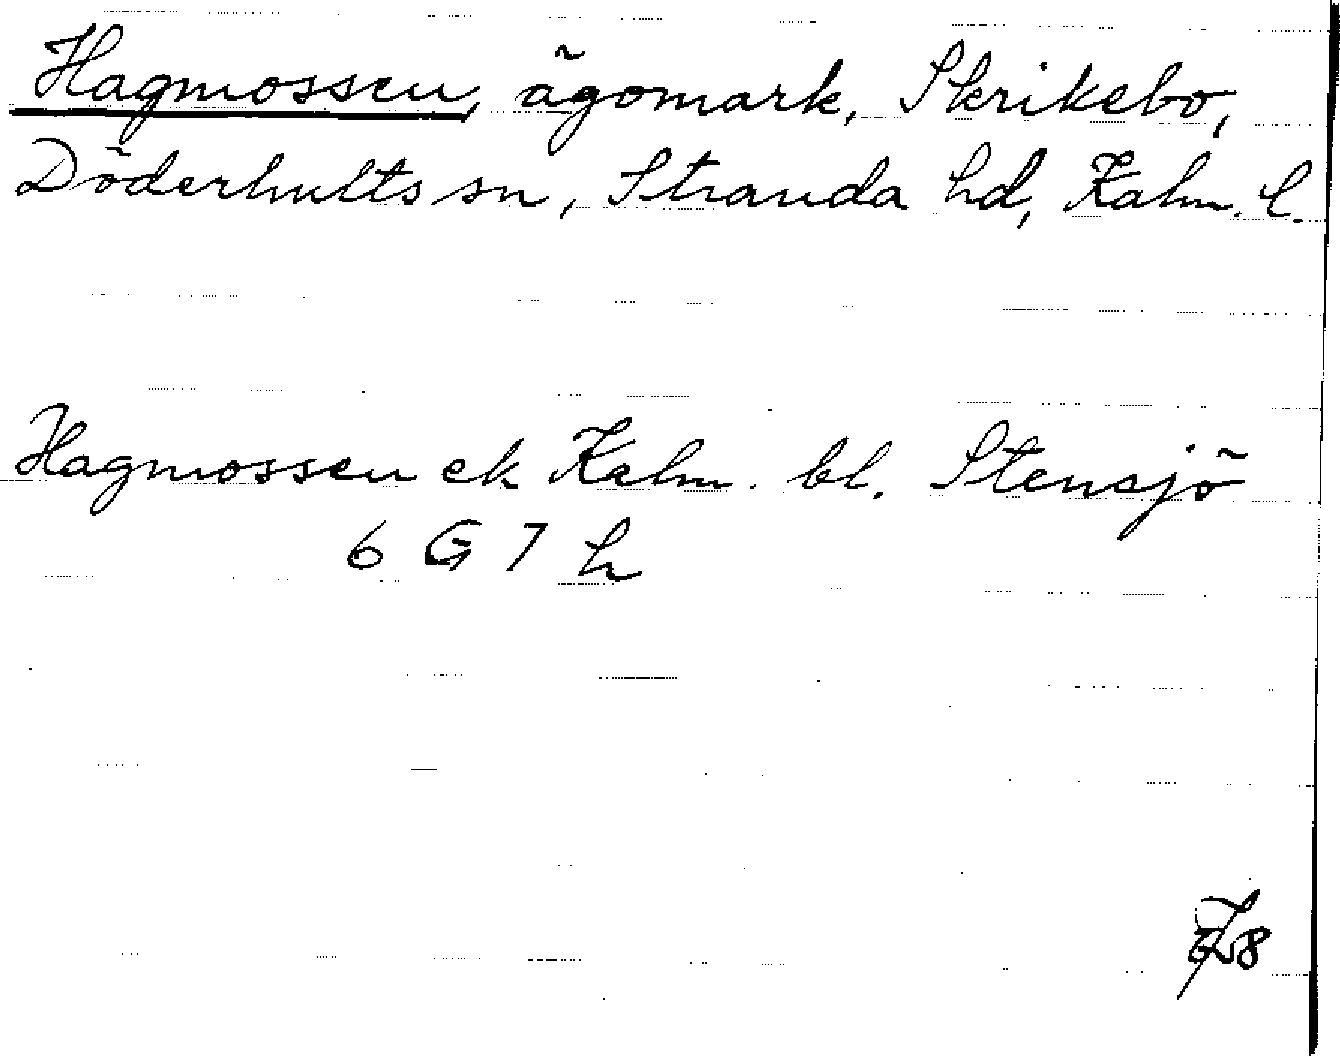 Hagmossen, ägomark, Skrikebo,
Döderhults sn, Stranda hd, Kalm. l.
Hagmossen ek Kalm. bl. Stensjö
6 G 7 h